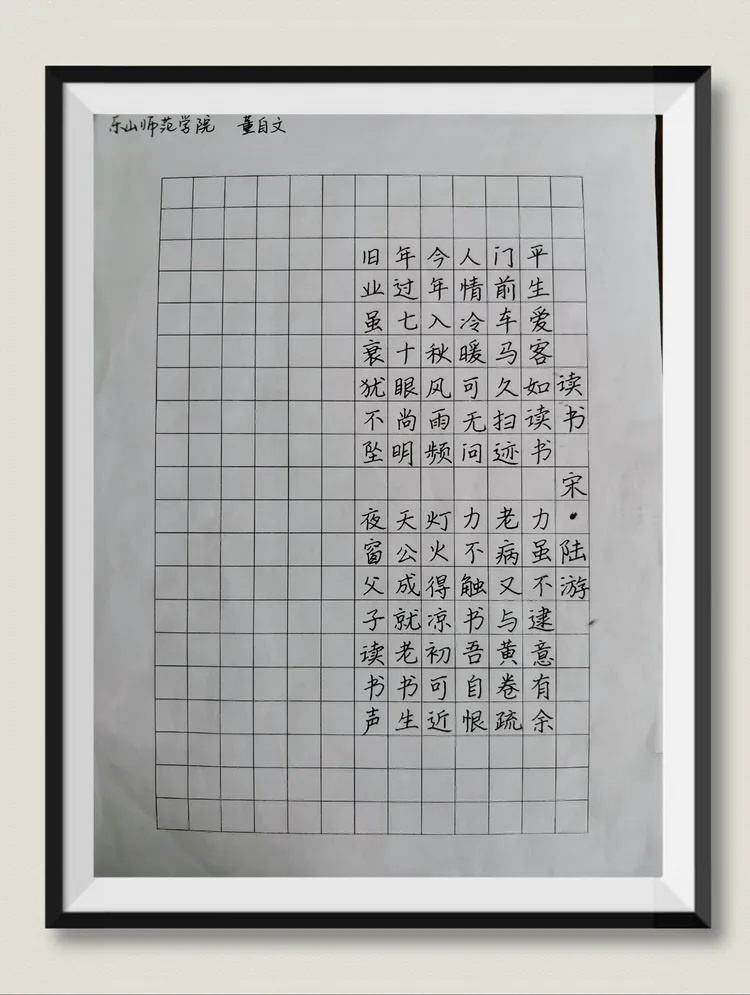 乐山师范学院 董自文
读书 宋·陆游
平生爱客如读书 力虽不逮意有余
门前车马久扫迹 老病又与黄卷疏
人情冷暖可无问 力不触书吾自恨
今年入秋风雨频 灯火得凉初可近
年过七十眼尚明 天公成就老书生
旧业虽衰犹不坠 夜窗父子读书声